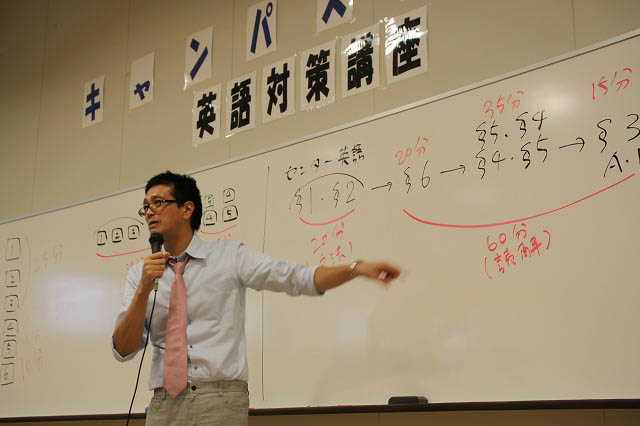 キャンパス
英語対策講座
センター英語
§1・§2 → §6 → §5・§4 → §3
§4・§5
20分
35分
15分
20分
60分
(読解)
1
2
3
4
5
6